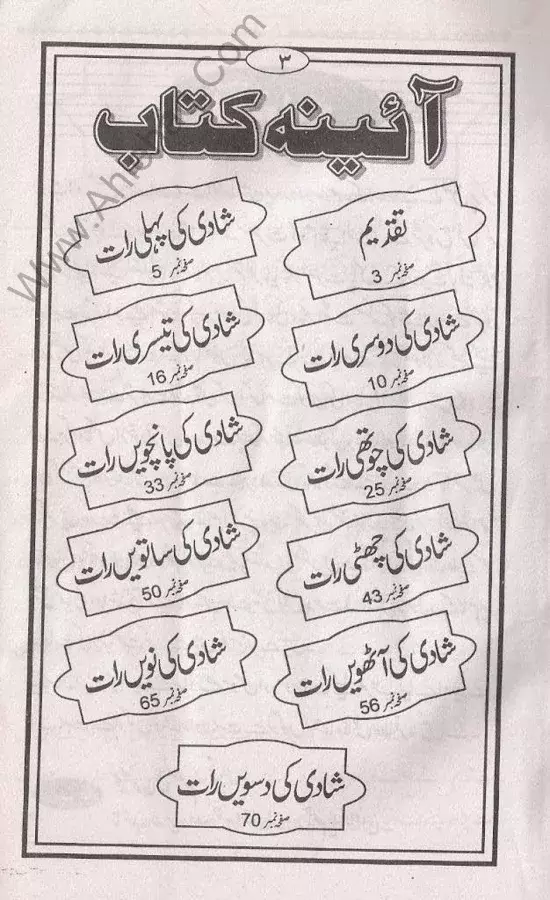 ۳
آئینہ کتاب
تقدیم
صفحہ نمبر 3
شادی کی پہلی رات
صفحہ نمبر 5
شادی کی دوسری رات
صفحہ نمبر 10
شادی کی تیسری رات
صفحہ نمبر 16
شادی کی چوتھی رات
صفحہ نمبر 25
شادی کی پانچویں رات
صفحہ نمبر 33
شادی کی چھٹی رات
صفحہ نمبر 43
شادی کی ساتویں رات
صفحہ نمبر 50
شادی کی آٹھویں رات
صفحہ نمبر 56
شادی کی نویں رات
صفحہ نمبر 65
شادی کی دسویں رات
صفحہ نمبر 70